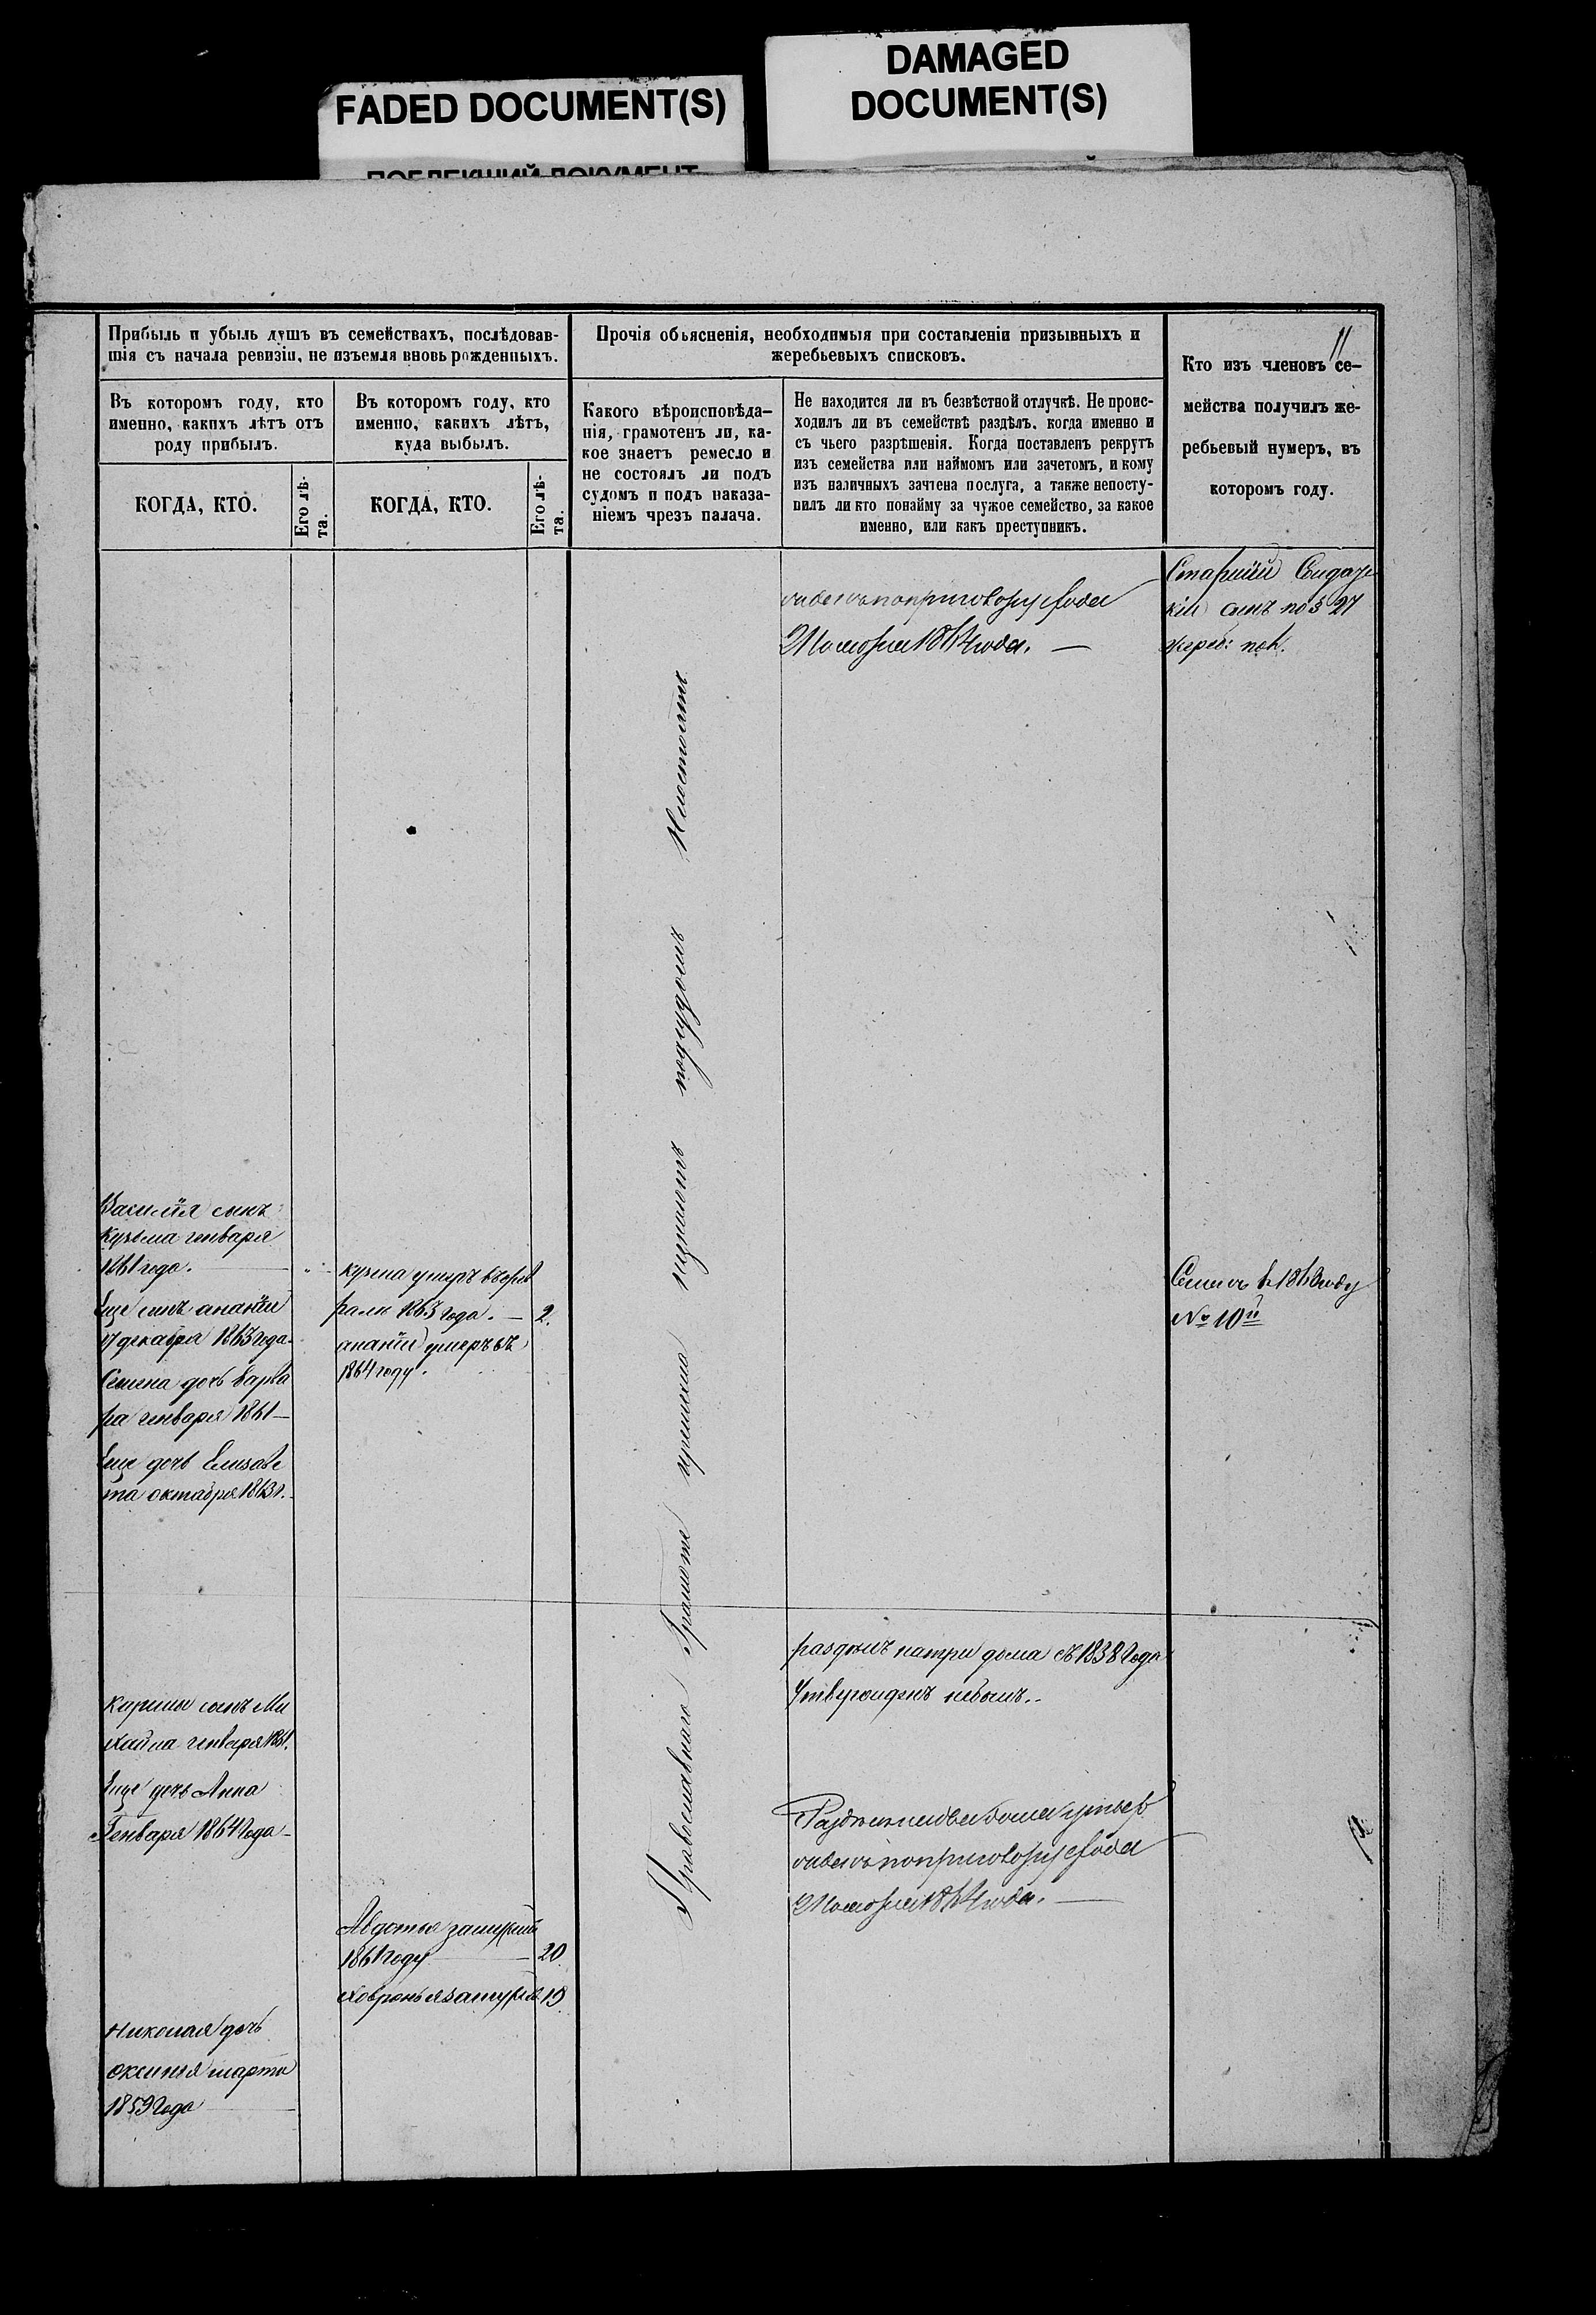 FADED DOCUMENT(S)
DAMAGED
DOCUMENT(S)
11
Прибыль и убыль душъ въ семействахъ, послѣдовав-
шія съ начала ревизіи, не изъемля вновь рожденныхъ.
Въ которомъ году, кто
именно, какихъ лѣтъ отъ
роду прибылъ.
КОГДА, КТО.
Его лѣ-
та.
Въ которомъ году, кто
именно, какихъ лѣтъ,
куда выбылъ.
КОГДА, КТО.
Его лѣ-
та.
Прочія объясненія, необходимыя при составленіи призывныхъ и
жеребьевыхъ списковъ.
Какого вѣроисповѣда-
нія, грамотенъ ли, ка-
кое знаетъ ремесло и
не состоялъ ли подъ
судомъ и подъ наказа-
ніемъ чрезъ палача.
Не находится ли въ безвѣстной отлучкѣ. Не проис-
ходилъ ли въ семействѣ раздѣлъ, когда именно и
съ чьего разрѣшенія. Когда поставленъ рекрутъ
изъ семейства или наймомъ или зачетомъ, и кому
изъ наличныхъ зачтена послуга, а также непосту-
пилъ ли кто понайму за чужое семейство, за какое
именно, или какъ преступникъ.
Кто изъ членовъ се-
мейства получилъ же-
ребьевый нумеръ, въ
которомъ году.
по приговору
1864 года.
Старшій
сынъ по § 27
жереб:
Василія сынъ
кузьма генваря
1861 года.
Еще сынъ ананій
17 декабря 1863 года
Семена дочь варва
ра генваря 1861
Еще дочь Елизаве
та октября 1863 г.
кузма умеръ въ фев
рале 1863 года. — 2.
ананій умеръ въ
1864 году.
Семенъ в 1863 году
№ 10й
Православнаго Грамоте незнаютъ подсудомъ Несостояли
на три дома въ 1838 года
Утвержденъ небылъ.
сынъ Ми
хайла генваря 1861.
Еще дочь Анна
Генваря 1864 года
по приговору
1864 года.
Авдотья замужъ
1861 году — 20
Ховронья замуж. 19
Николая дочь
оксинья марта
1859 года